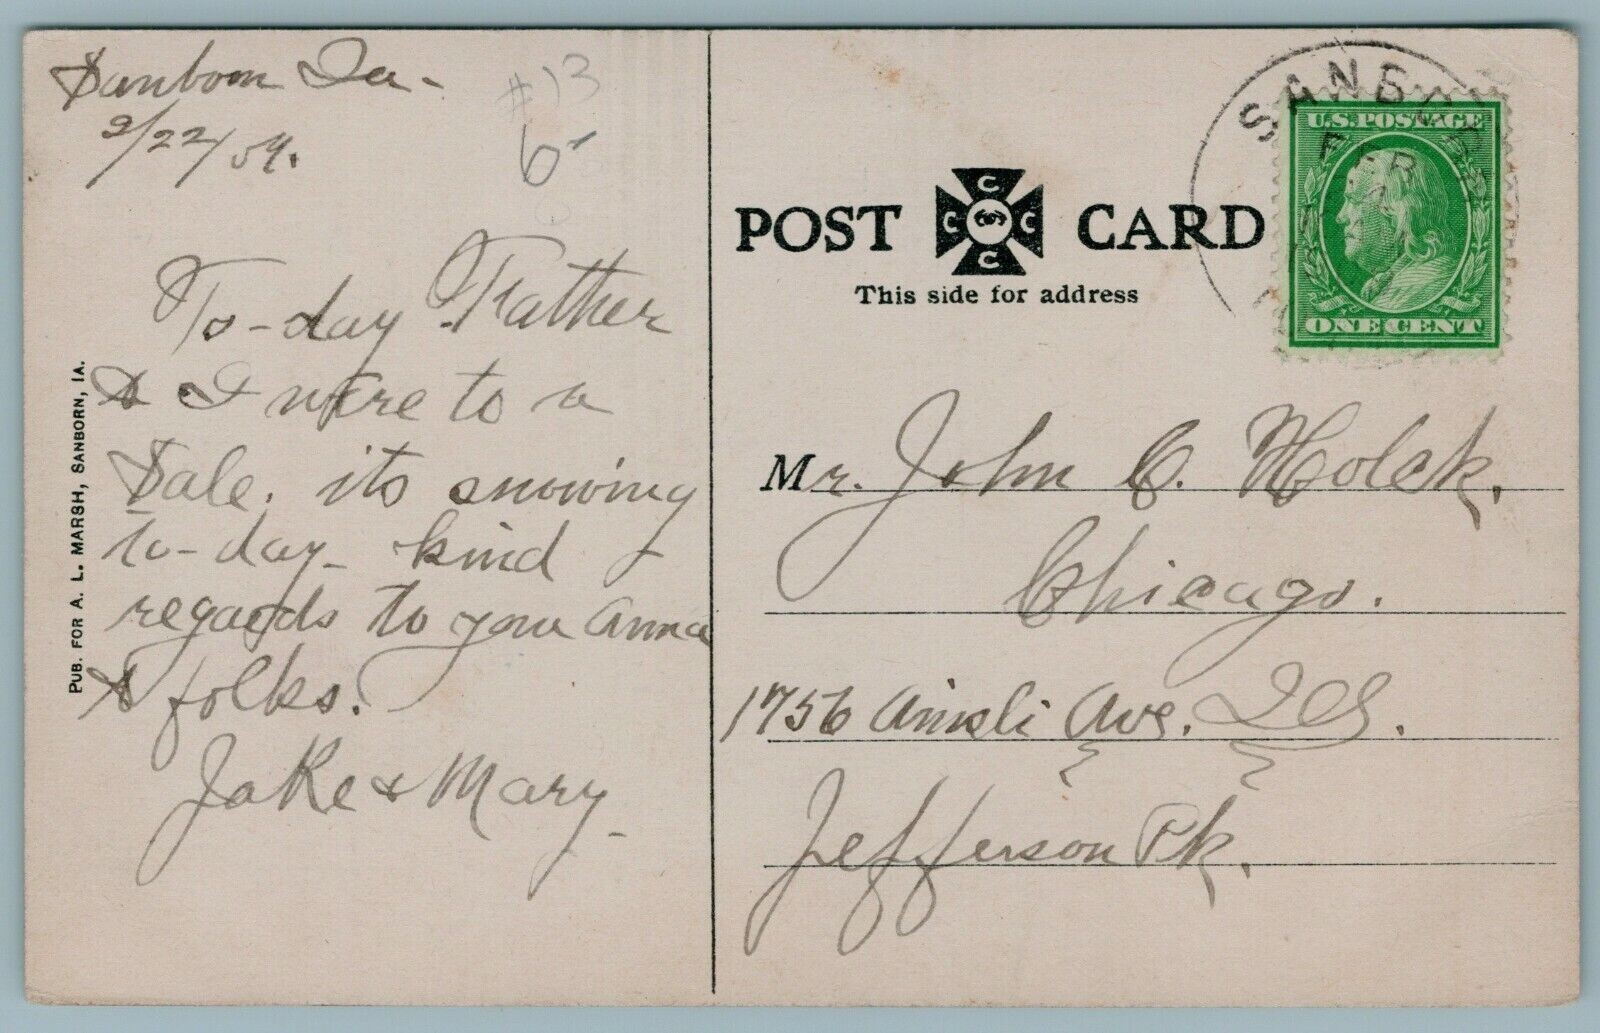 Sanborn Ia-
2/22/09.
#13
6-
To-day Father
& I were to a
Sale. its snowing
to-day- kind
regards to you anna
& folks.
Jake & Mary-
PUB. FOR A. L. MARSH, SANBORN, IA.
POST CARD
C
C C
C
This side for address
SANBOR
FEB
U.S. POSTAGE
ONE CENT
Mr. John C. Holck.
Chicago.
1756 Ainsli Ave. Ill.
Jefferson Pk.